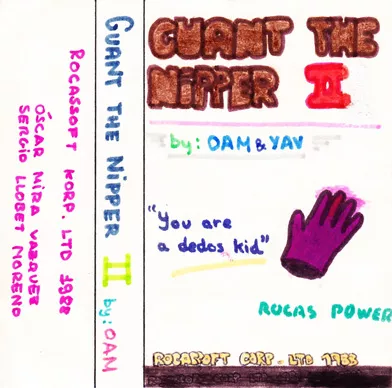 ROCASSOFT KORP. LTD 1988
ÓSCAR MIRA VAZQUEZ
SERGIO LLOBET MORENO
GUANT THE NIPPER II by: OAM
GUANT THE
NIPPER II
by: OAM & YAV
"You are
a dedos kid"
ROCAS POWER
ROCASOFT CORP. LTD 1988